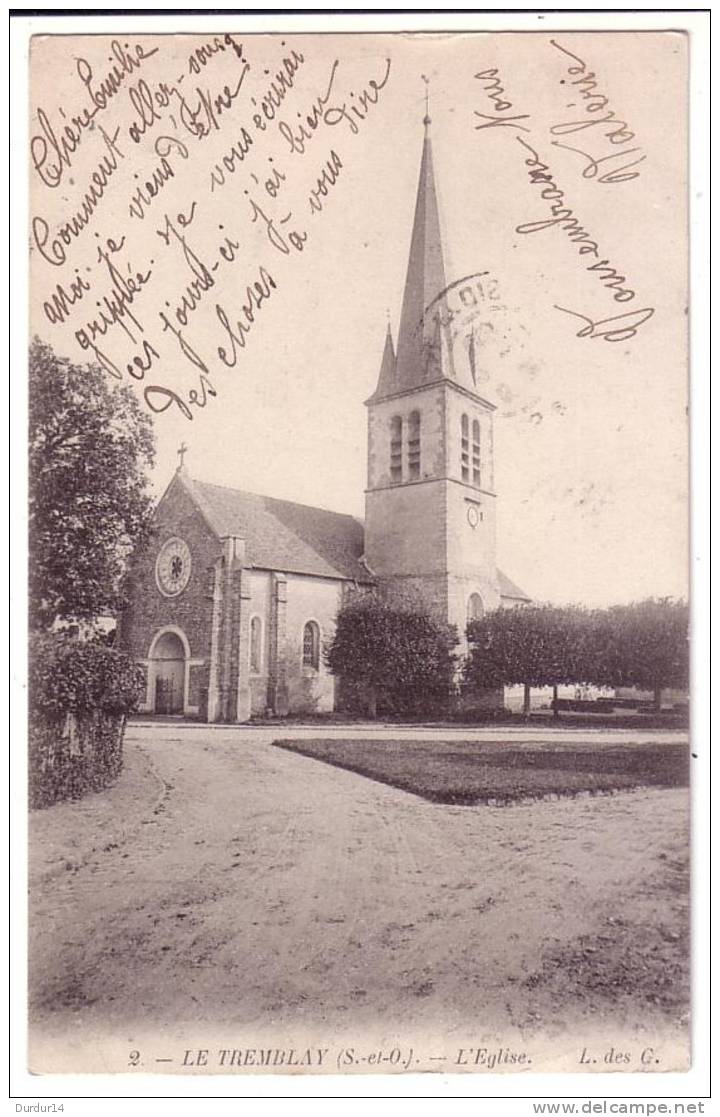 Chère Emilie
Comment allez-vous
moi je viens d'être
grippée. Je vous écrirai
ces jours-ci j'ai bien
des choses à vous dire
Nous
vous embrassons
Valérie
2. — LE TREMBLAY (S.-et-O.). — L'Eglise. L. des G.
Durdur14
www.delcampe.net